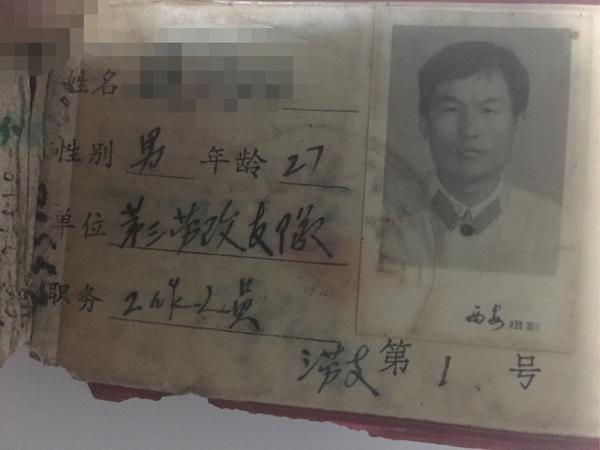 姓名
性别 男 年龄 27
单位 第三劳改支队
职务 工作人员
西安 摄影
三劳支 第 1 号